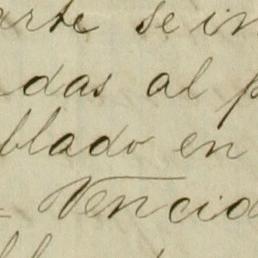 arte se in
das al p
blado en
Vencid